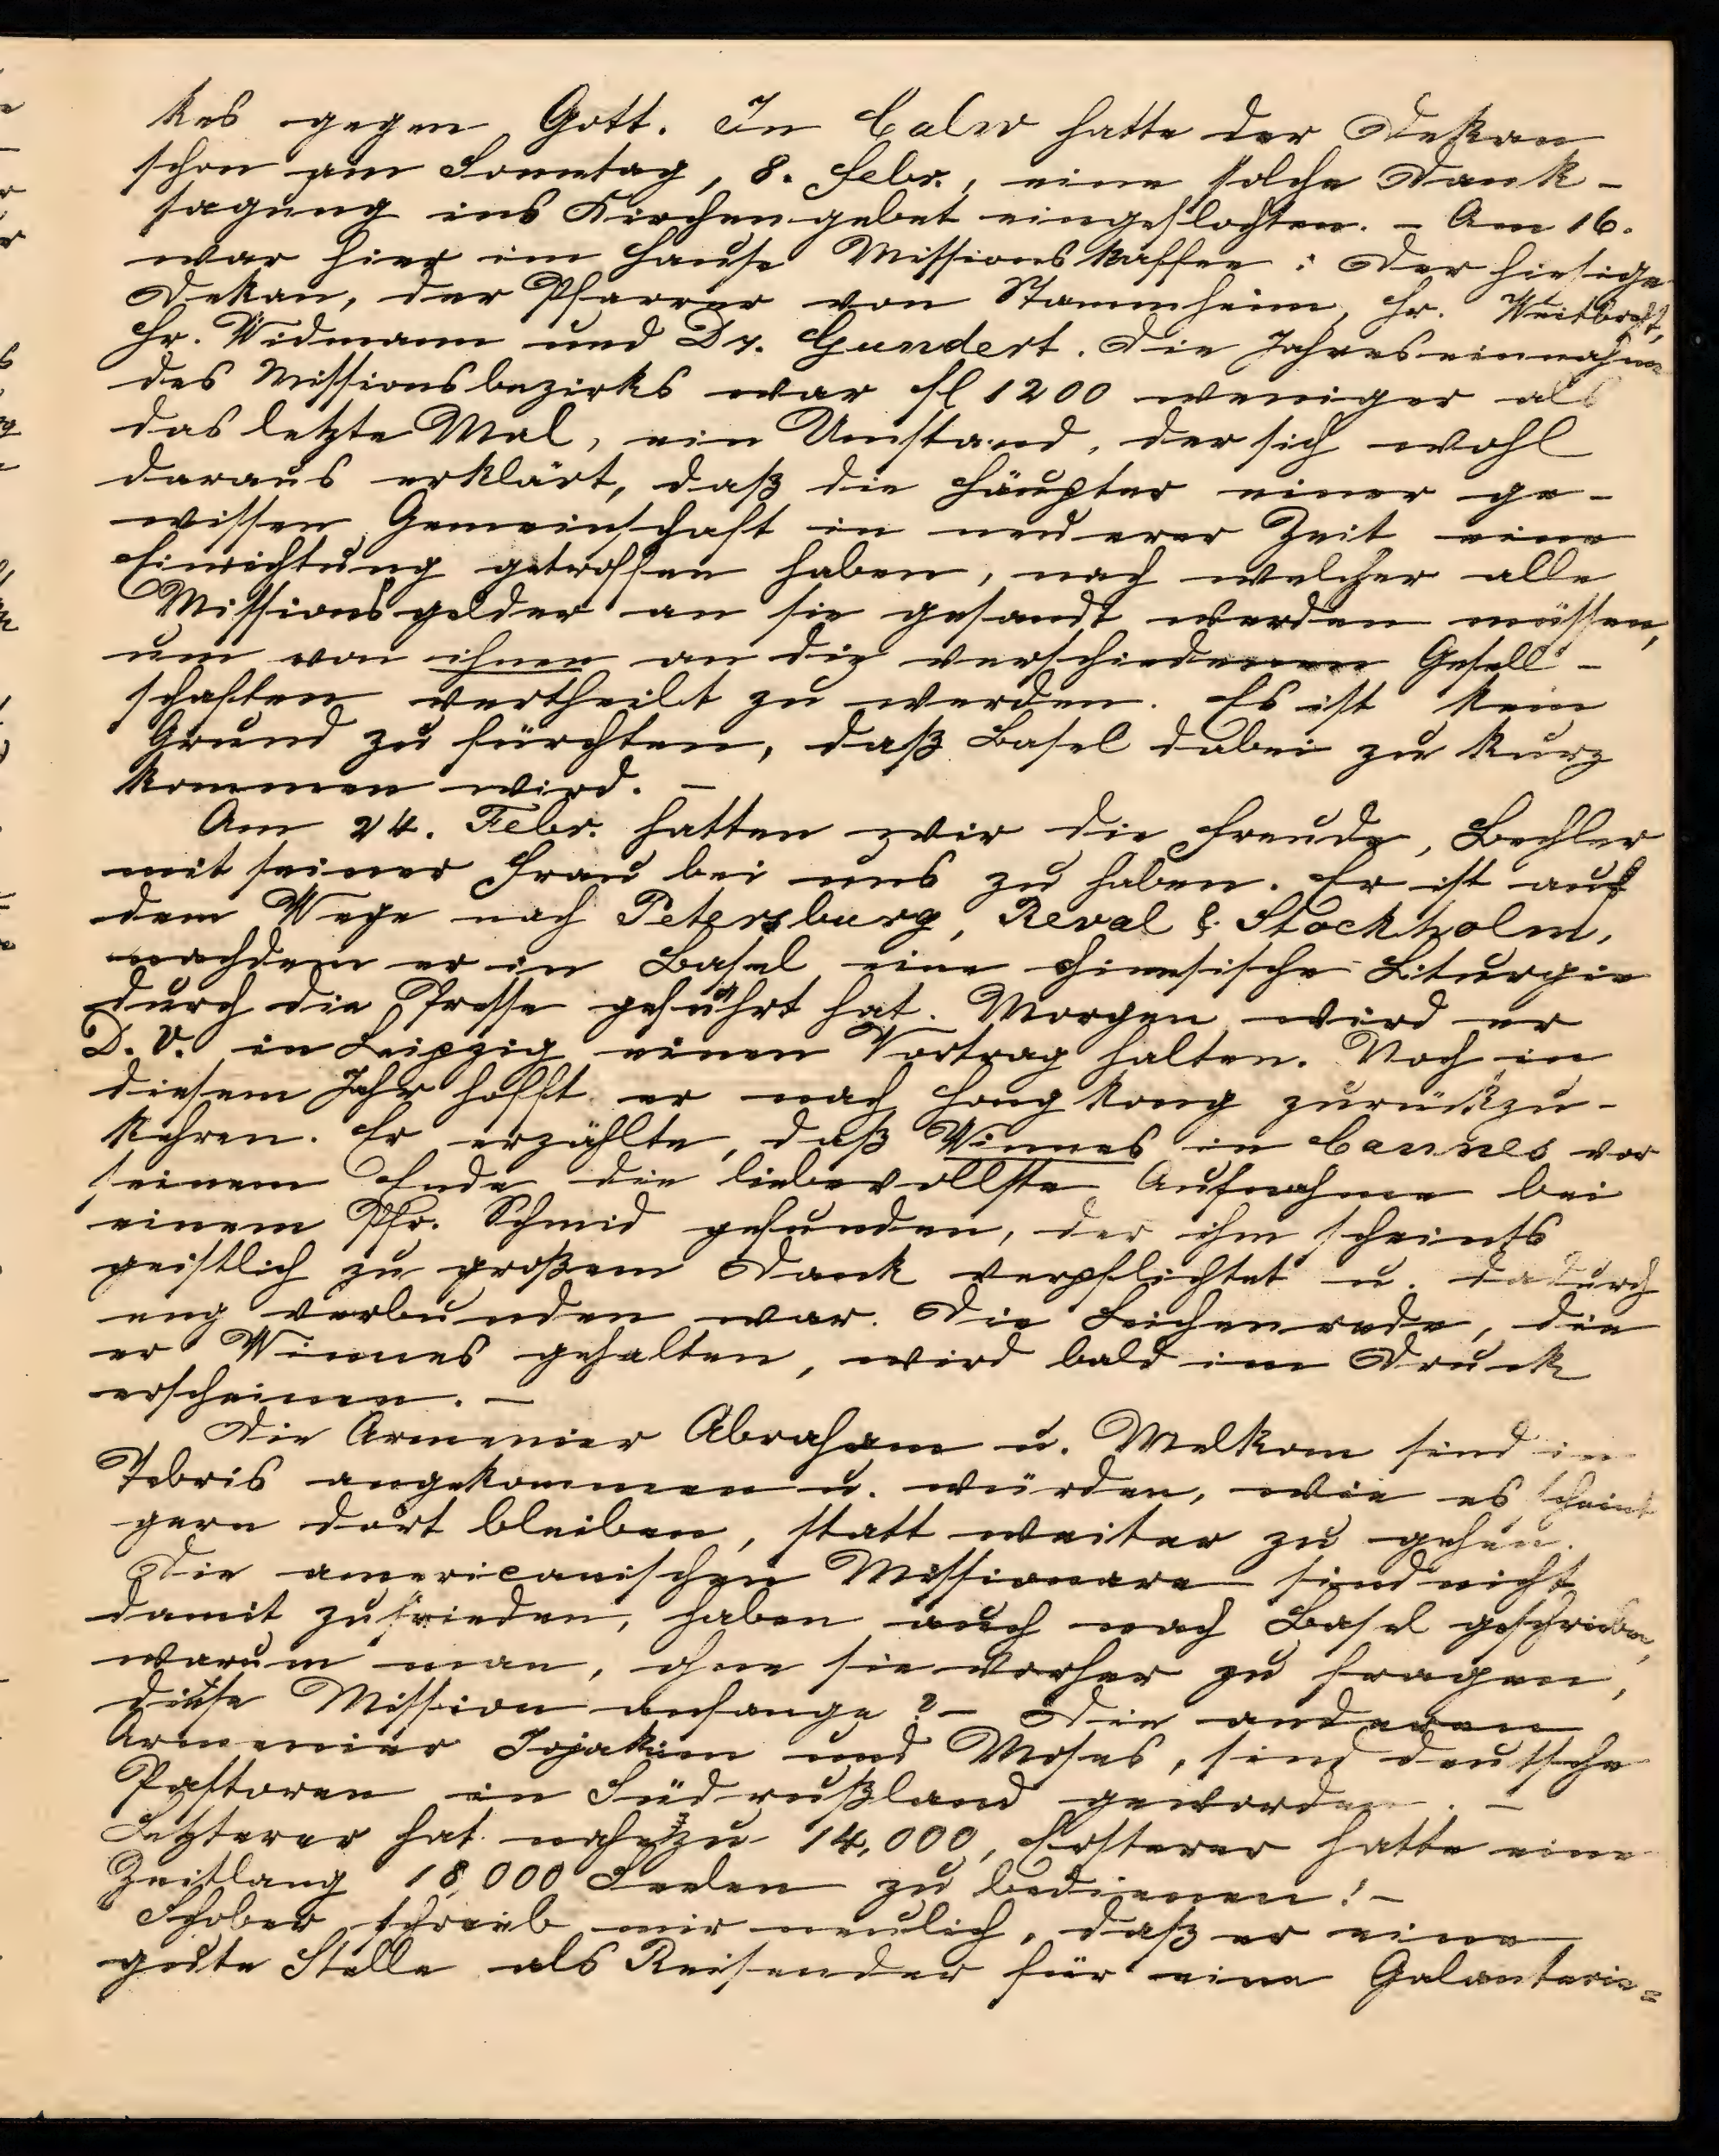 kes gegen Gott. In Calw hatte der Dekan
schon am Sonntag, 8. Febr., eine solche Dank-
sagung ins Kirchengebet eingeflochten. - Am 16.
war hier im Hause Missionskaffee: Der hiesige
Dekan, der Pfarrer von Stammheim, Hr. Weitbrecht,
Hr. Widmann und Dr. Gundert. Die Jahreseinnahme
des Missionsbezirks war fl 1200 weniger als
das letzte Mal, ein Umstand, der sich wohl
daraus erklärt, daß die Häupter einer ge-
wissen Gemeinschaft in neuerer Zeit eine
Einrichtung getroffen haben, nach welcher alle
Missionsgelder an sie gesandt werden müssen,
um von ihnen an die verschiedenen Gesell-
schaften vertheilt zu werden. Es ist kein
Grund zu fürchten, daß Basel dabei zu kurz
kommen wird. -
Am 24. Febr. hatten wir die Freude, Bechler
mit seiner Frau bei uns zu haben. Er ist auf
dem Wege nach Petersburg, Reval & Stockholm,
nachdem er in Basel eine chinesische Liturgie
durch die Presse geführt hat. Morgen wird er
D. V. in Leipzig einen Vortrag halten. Noch in
diesem Jahr hofft er nach Hongkong zurückzu-
kehren. Er erzählte, daß Winnes in Cannes vor
seinem Ende die liebevollste Aufnahme bei
einem Pfr. Schmid gefunden, der ihm scheints
geistlich zu großem Dank verpflichtet u. dadurch
eng verbunden war. Die Leichenrede, die
er Winnes gehalten, wird bald im Druck
erscheinen. -
Die Armenier Abraham u. Melkom sind in
Tebris angekommen u. würden, wie es scheint
gern dort bleiben, statt weiter zu gehen.
Die americanischen Missionare sind nicht
damit zufrieden, haben auch nach Basel geschrieben,
warum man, ohne sie vorher zu fragen,
diese Mission anfange? - Die anderen
Armenier Jojakim und Moses, sind deutsche
Pastoren in Südrußland geworden. -
Letzterer hat nahezu 14,000, Ersterer hatte eine
Zeitlang 18,000 Seelen zu bedienen! -
Schober schrieb mir neulich, daß er eine
gute Stelle als Reisender für eine Galanterie=